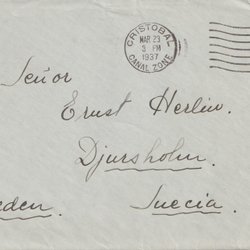 CRISTOBAL
MAR 23
3 PM
1937
CANAL ZONE
Señor
Ernst Herlin.
Djursholm.
Suecia.
eden.